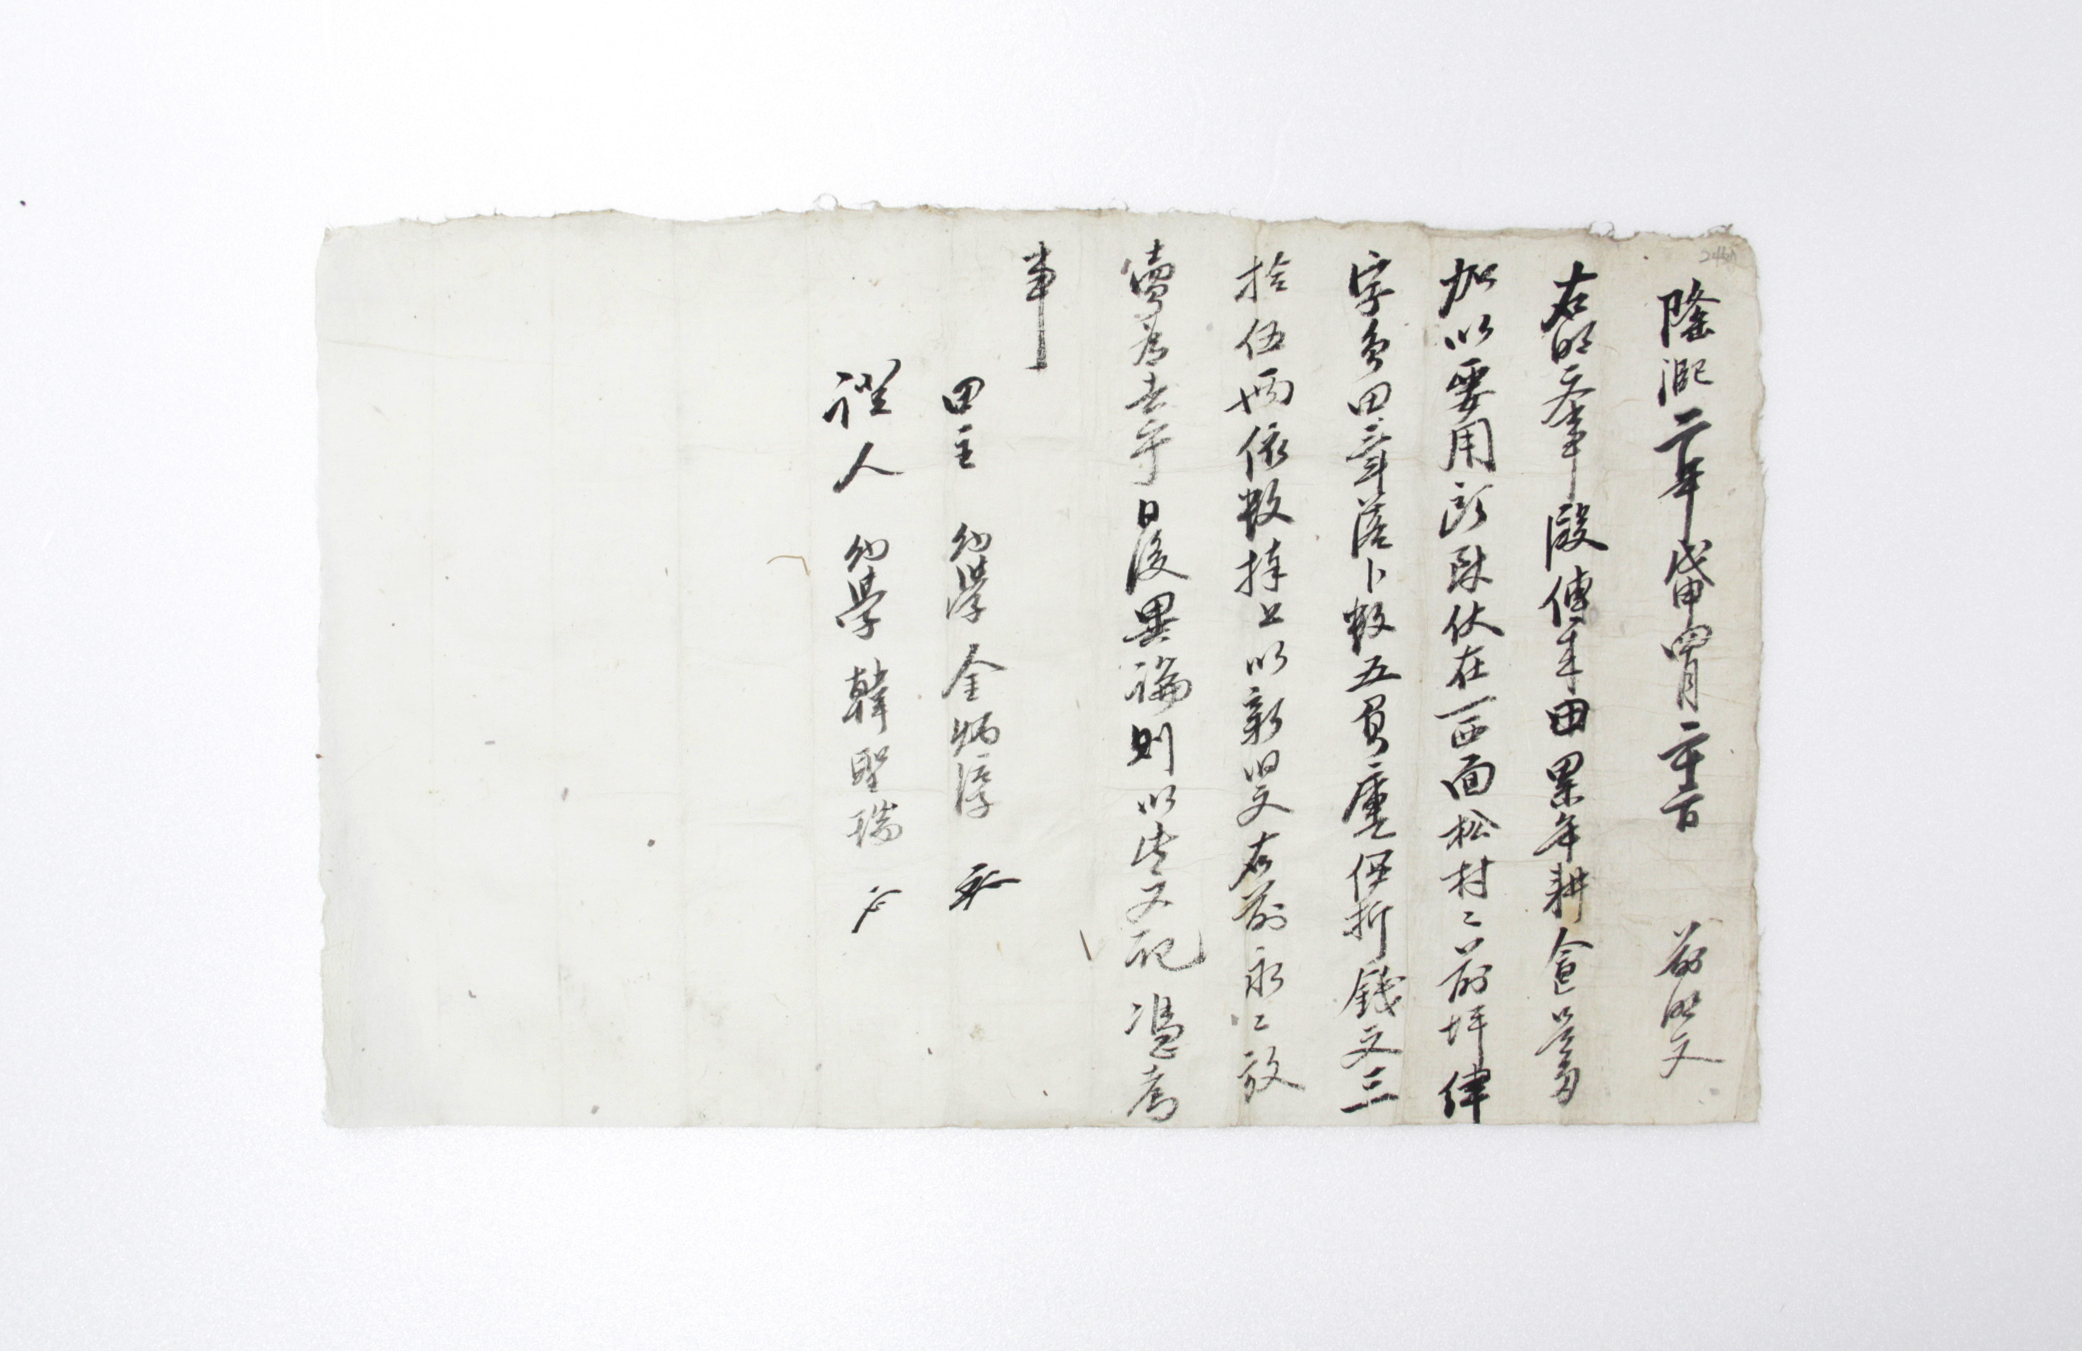 隆凞二年戊申四月二十二日 前明文
右明文事段傳來田累年耕食是多
加以要用所致伏在一西面松村二前坪律
字負田三斗落卜數五負㐣價折錢文三
拾伍兩依數捧上以新旧文右前永二放
賣爲去乎日後異論則以此文記憑考
事
田主 幼學 金炳淳
證人 幼學 韓聖瑞